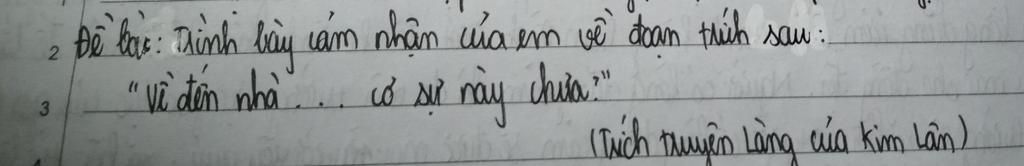 2 Đề bài: Trình bày cảm nhận của em về đoạn trích sau:
3 "Về đến nhà... có sự này chưa?"
(Trích truyện Làng của Kim Lân)